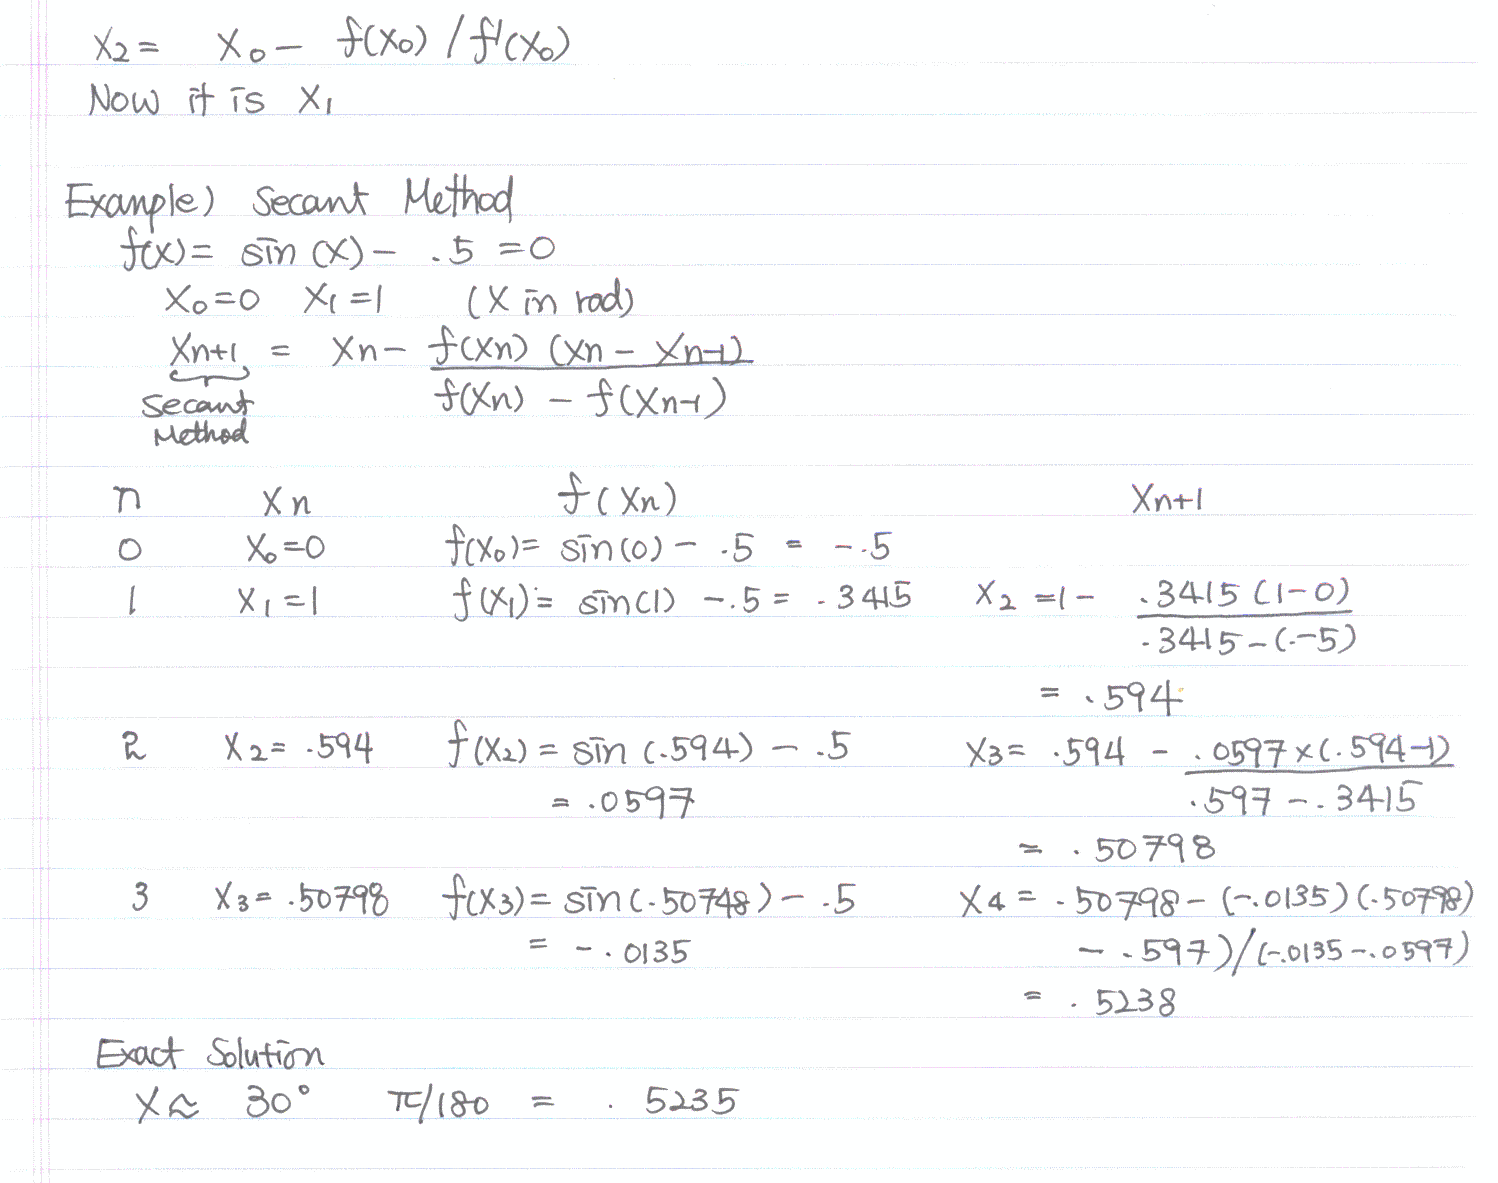 X2 = X0 - f(X0) / f'(X0)
Now it is X1
Example) Secant Method
f(x) = sin (x) - .5 = 0
X0=0 X1=1 (X in rad)
Xn+1 = Xn - f(Xn) (Xn - Xn-1)
f(Xn) - f(Xn-1)
Secant
Method
n Xn f(Xn) Xn+1
0 X0=0 f(X0)= sin(0) - .5 = -.5
1 X1=1 f(X1)= sin(1) -.5 = .3415 X2 =1- .3415 (1-0)
.3415-(.-5)
= .594
2 X2= .594 f(X2) = sin (.594) - .5 X3= .594 - .0597×(.594-1)
= .0597 .597 -.3415
= .50798
3 X3= .50798 f(X3)= sin(.50748) - .5 X4 = .50798 - (-.0135)(.50798)
= -.0135 - .597)/(-.0135-.0597)
= .5238
Exact Solution
X≈ 30° π/180 = .5235